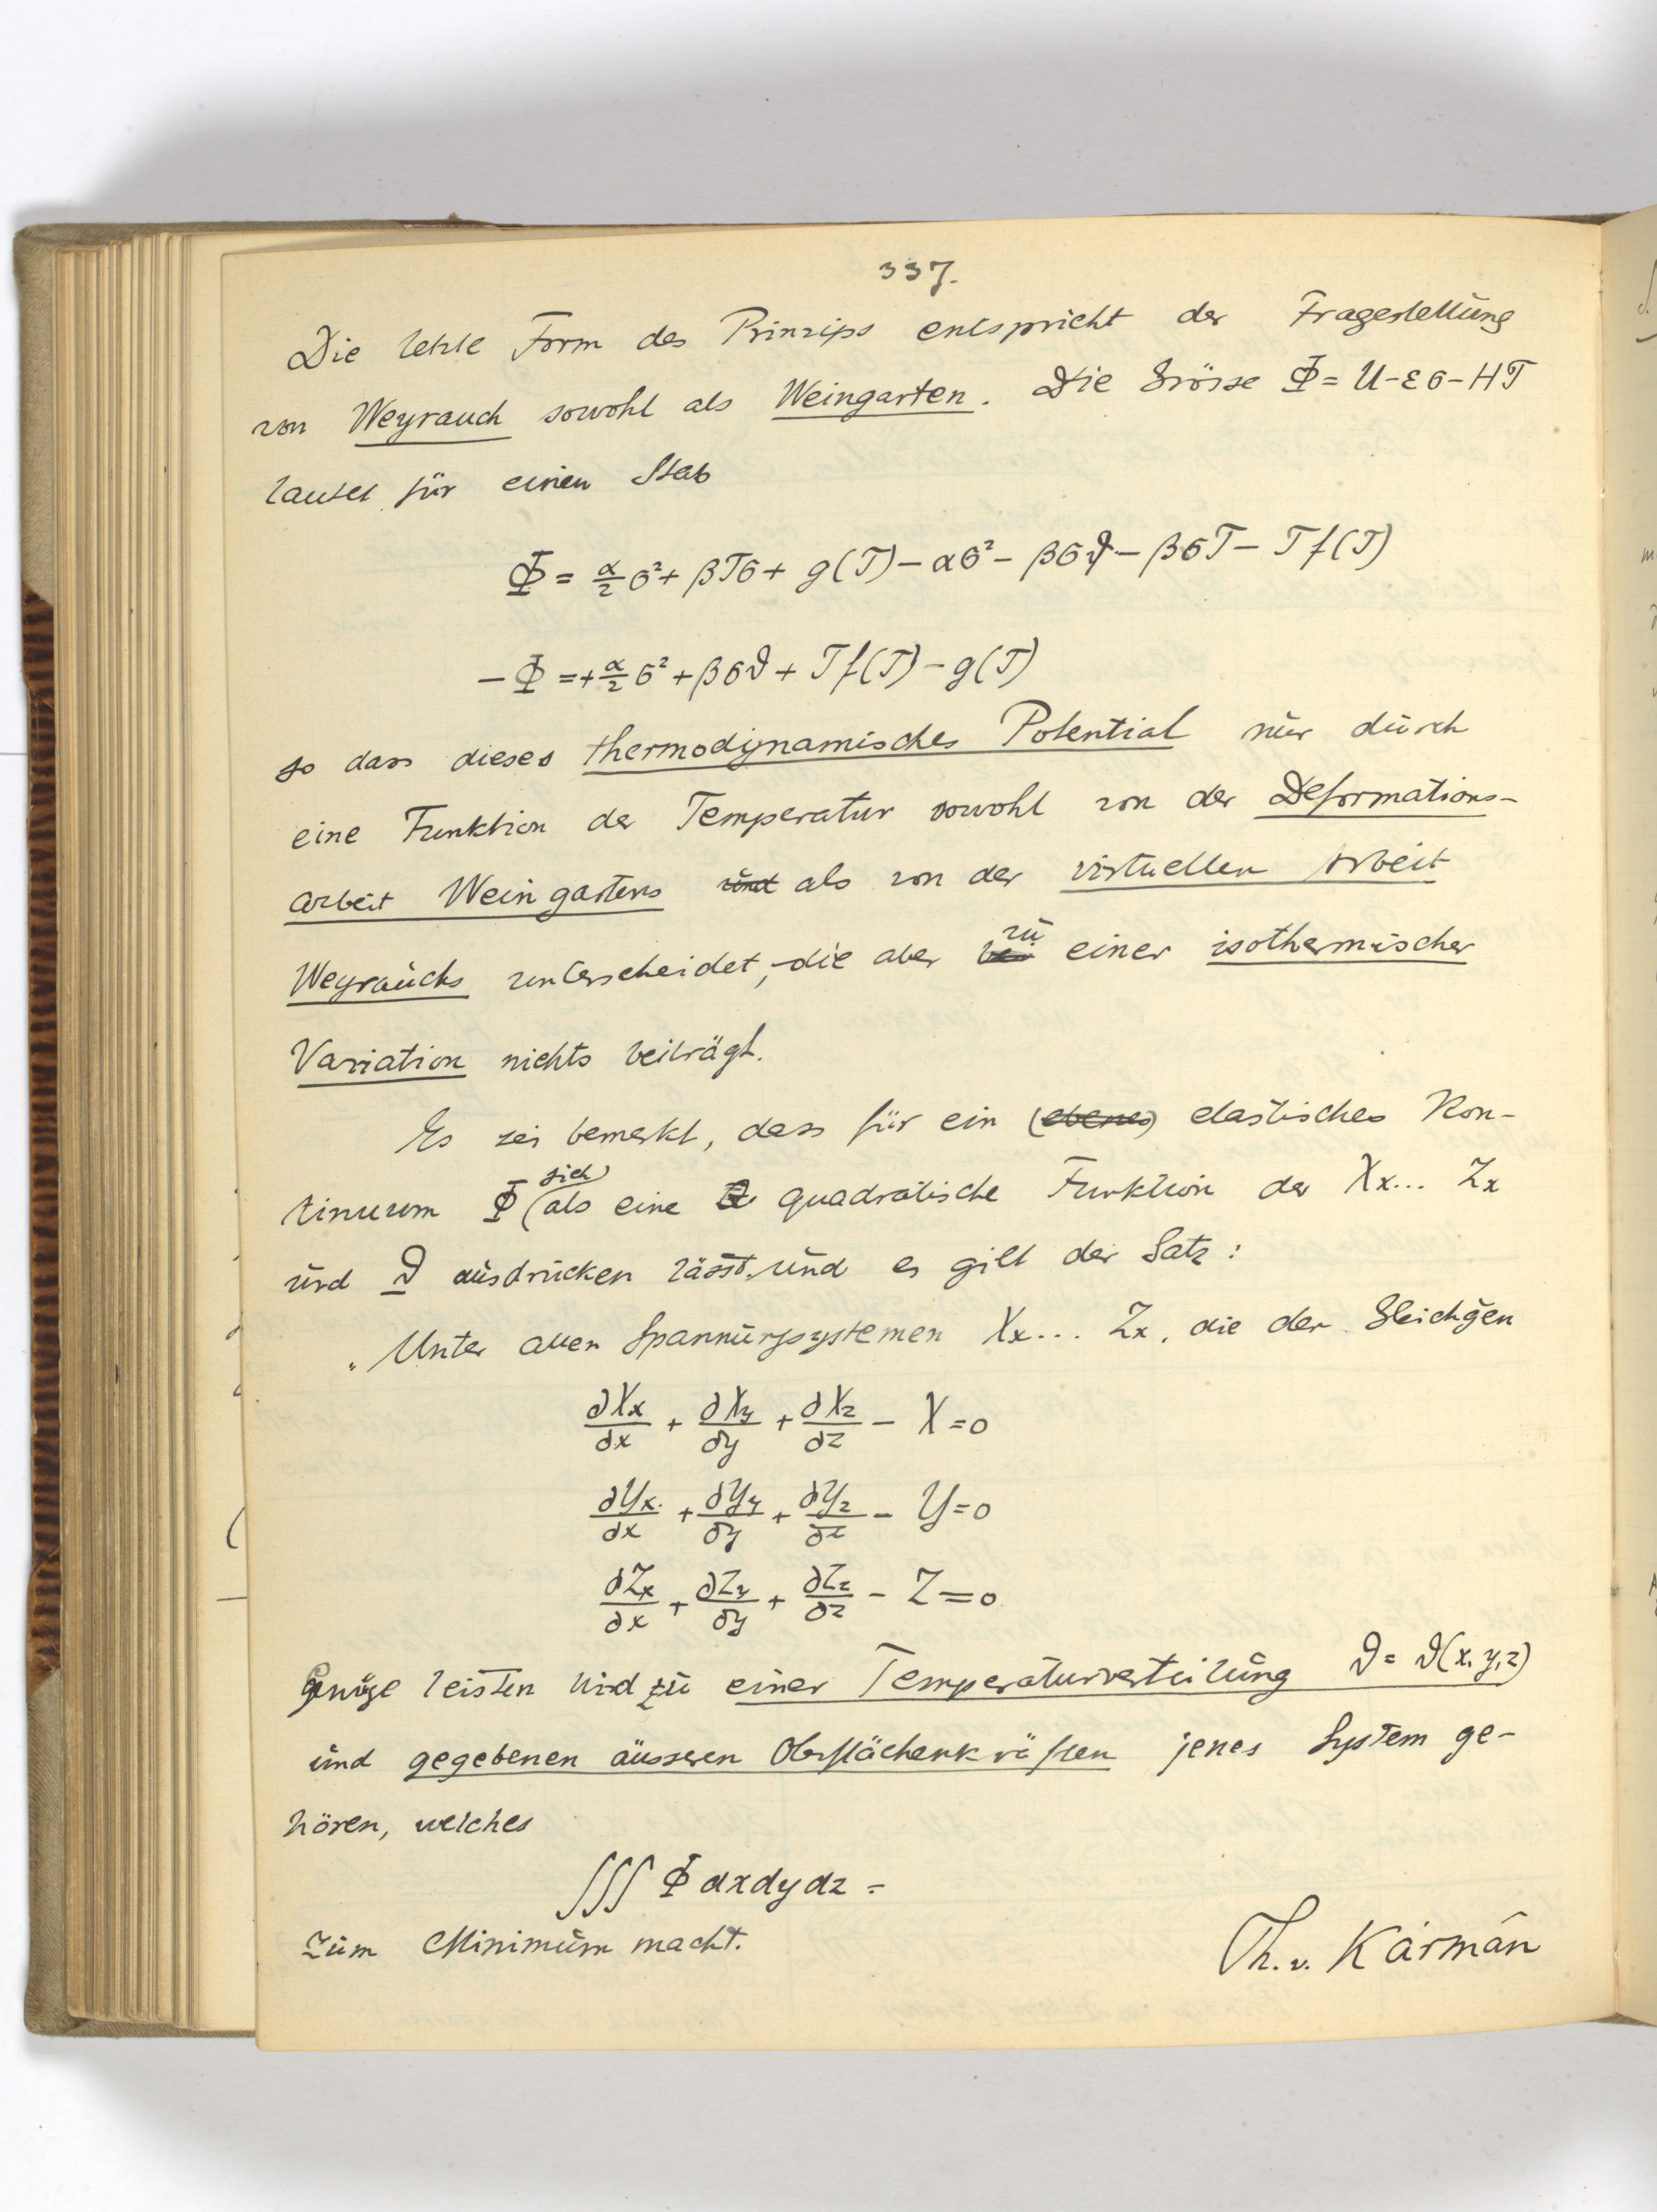 337.
Die letzte Form des Prinzips entspricht der Fragestellung
von Weyrauch sowohl als Weingarten. Die Grösse Φ = U-εσ-HT
lautet für einen Stab
Φ = α/2 σ² + βTσ + g(T) - ασ² - βσϑ - βσT - Tf(T)
-Φ = + α/2 σ² + βσϑ + Tf(T) - g(T)
so dass dieses thermodynamisches Potential nur durch
eine Funktion der Temperatur sowohl von der Deformations-
arbeit Weingartens und als von der virtuellen Arbeit
Weyrauchs unterscheidet, die aber bei zu einer isothermischer
Variation nichts beiträgt.
Es sei bemerkt, dass für ein (ebenes) elastisches Kon-
tinuum Φ sich als eine quadratische Funktion der Xx... Zx
und ϑ ausdrücken lässt und es gilt der Satz:
„Unter allen Spannungssystemen Xx... Zx, die den Gleichgen
∂Xx/∂x + ∂Xy/∂y + ∂Xz/∂z - X = 0
∂Yx/∂x + ∂Yy/∂y + ∂Yz/∂z - Y = 0
∂Zx/∂x + ∂Zy/∂y + ∂Zz/∂z - Z = 0
Genüge leisten wird zu einer Temperaturverteilung ϑ = ϑ(x,y,z)
und gegebenen äusseren Oberflächenkräften jenes System ge-
hören, welches
∫∫∫ Φ dxdydz =
zum Minimum macht.
Th. v. Kármán